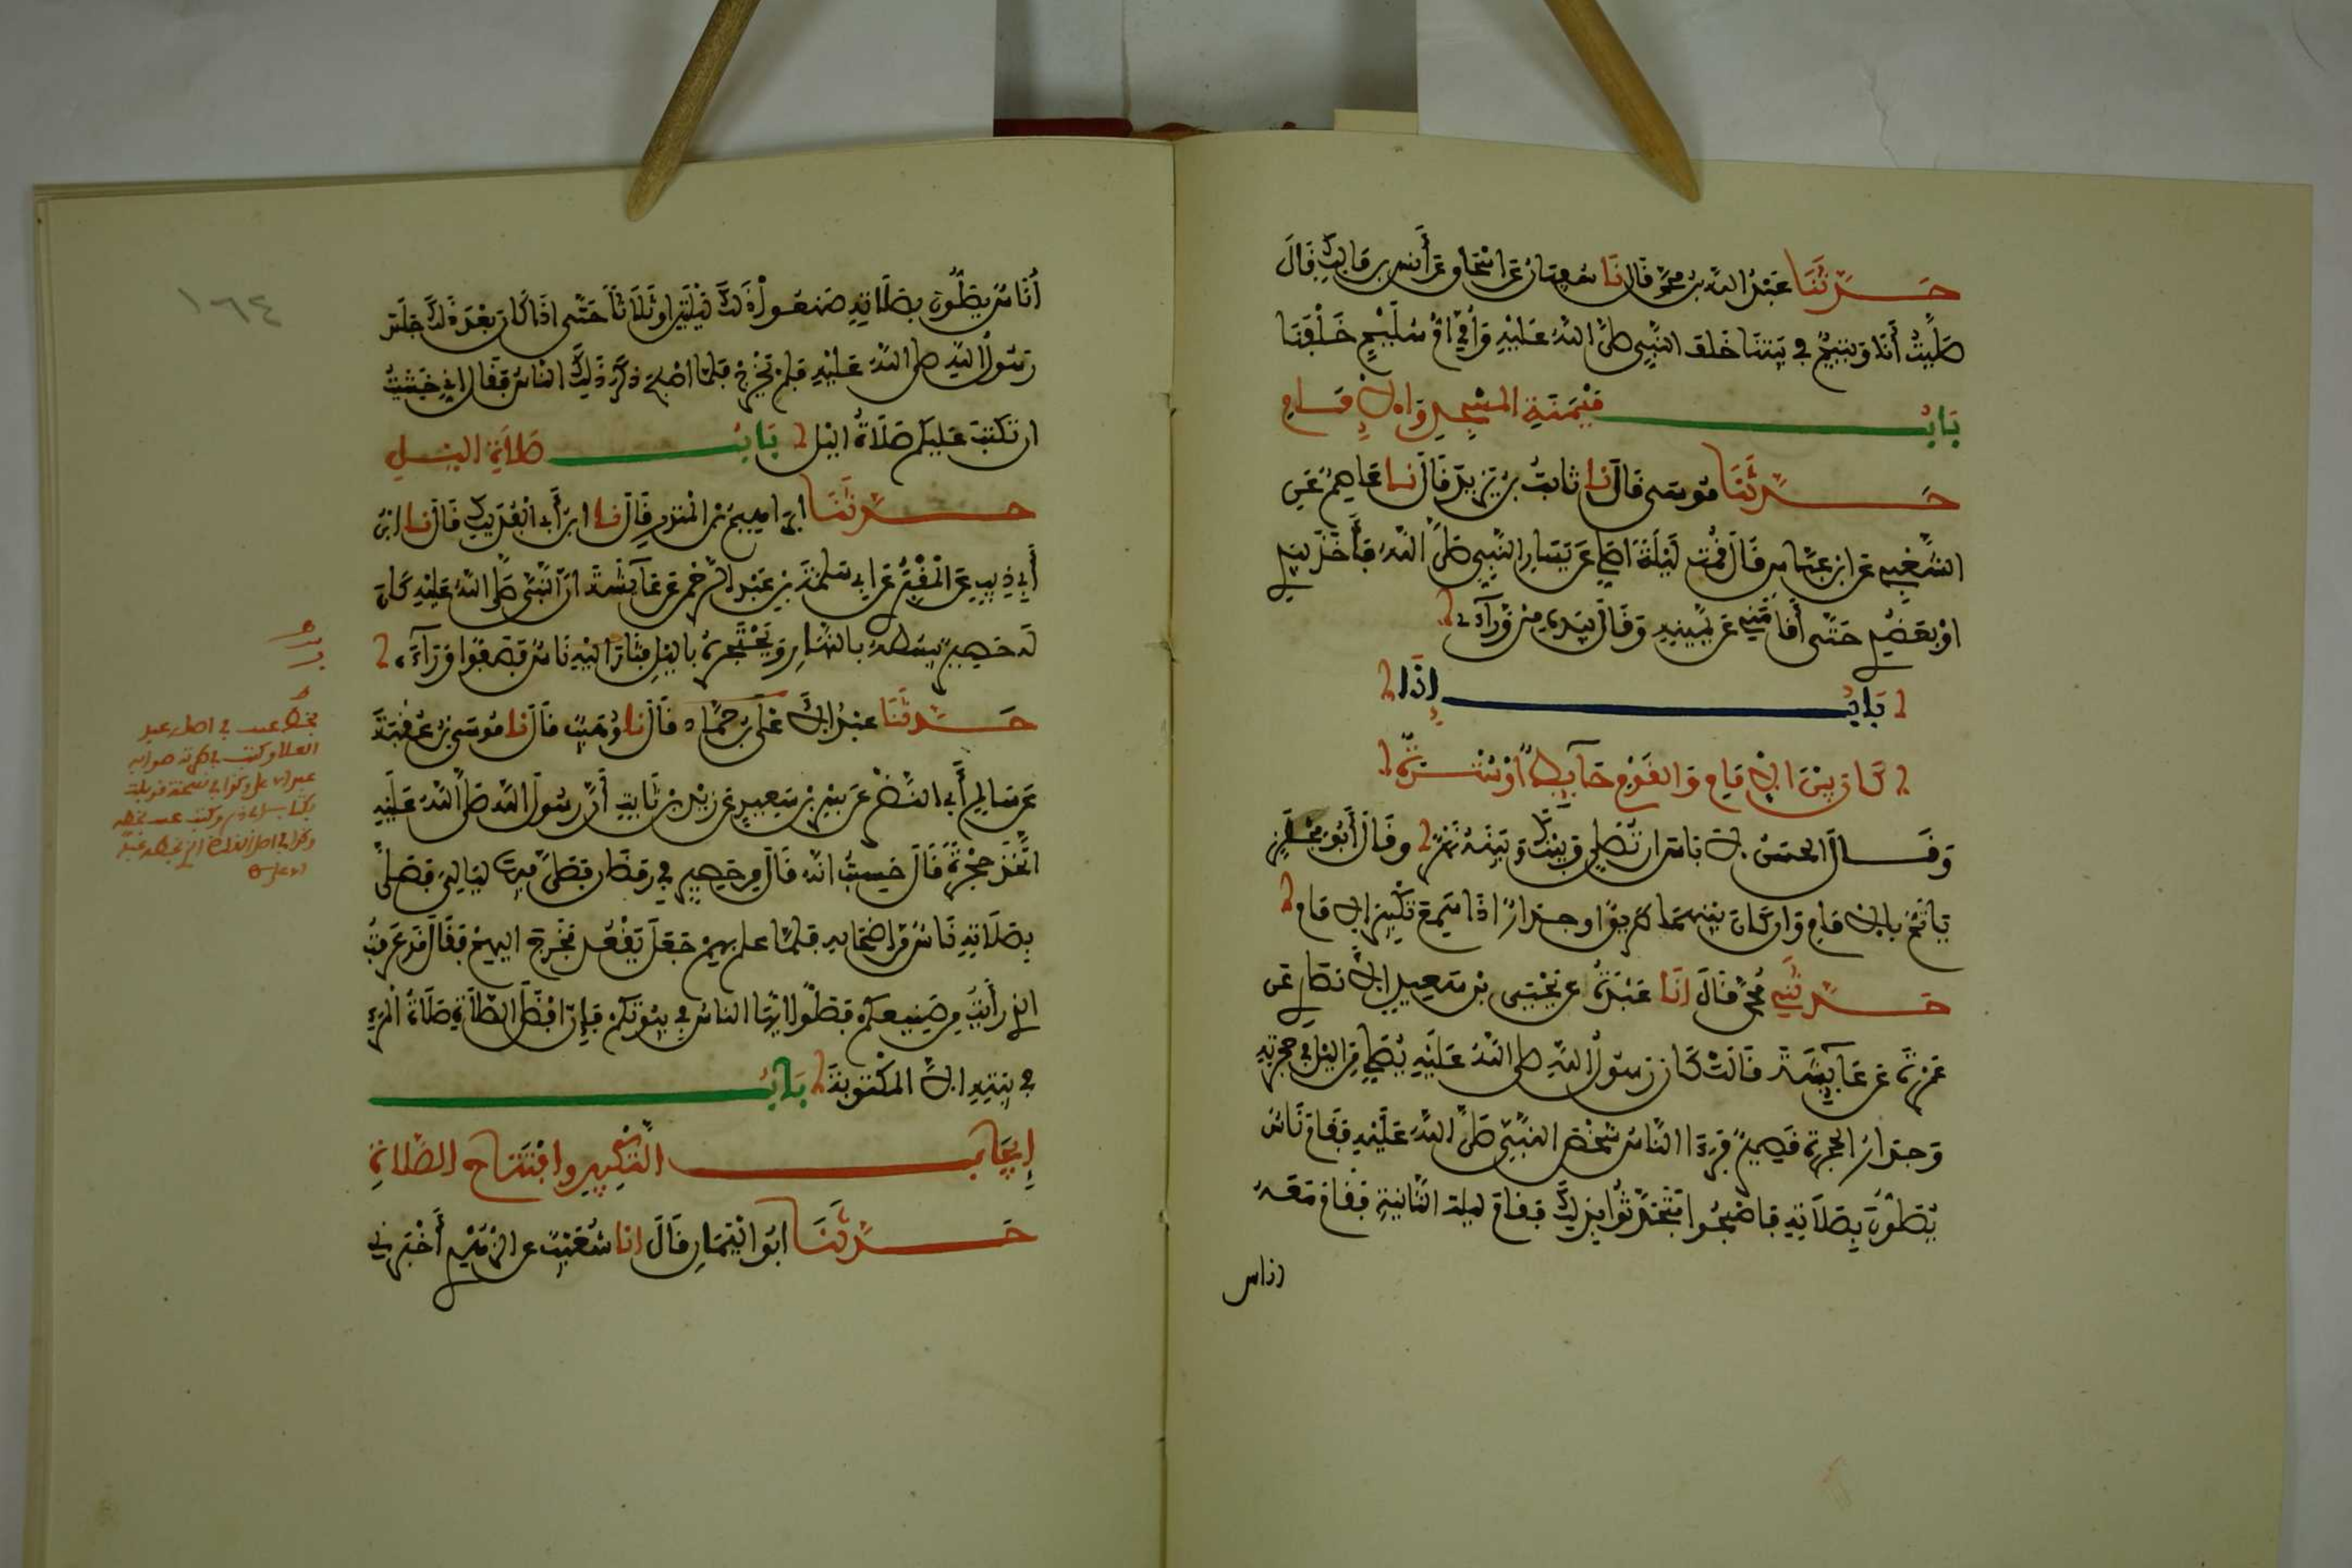 حَدَّثَنَا عَبْدُ اللَّهِ بْنُ مُحَمَّدٍ قَالَ نَا سُفْيَانُ عَنْ إِسْحَاقَ عَنْ أَنَسِ بْنِ مَالِكٍ قَالَ
صَلَّيْتُ أَنَا وَيَتِيمٌ فِي بَيْتِنَا خَلْفَ النَّبِيِّ صَلَّى اللَّهُ عَلَيْهِ وَأُمِّي أُمُّ سُلَيْمٍ خَلْفَنَا
بَابُ مَيْمَنَةِ الْمَسْجِدِ وَالْإِمَامِ
حَدَّثَنَا مُوسَى قَالَ نَا ثَابِتُ بْنُ يَزِيدَ قَالَ نَا عَاصِمٌ عَنِ
الشَّعْبِيِّ عَنِ ابْنِ عَبَّاسٍ قَالَ قُمْتُ لَيْلَةً أُصَلِّي عَنْ يَسَارِ النَّبِيِّ صَلَّى اللَّهُ فَأَخَذَ بِيَدِي
أَوْ بِعَضُدِي حَتَّى أَقَامَنِي عَنْ يَمِينِهِ وَقَالَ بِيَدِهِ مِنْ وَرَائِي
بَابُ إِذَا
كَانَ بَيْنَ الْإِمَامِ وَالْقَوْمِ حَائِطٌ أَوْ سُتْرَةٌ
وَقَالَ الْحَسَنُ لَا بَأْسَ أَنْ تُصَلِّيَ وَبَيْنَكَ وَبَيْنَهُ نَهْرٌ وَقَالَ أَبُو مِجْلَزٍ
يَأْتَمُّ بِالْإِمَامِ وَإِنْ كَانَ بَيْنَهُمَا طَرِيقٌ أَوْ جِدَارٌ إِذَا سَمِعَ تَكْبِيرَ الْإِمَامِ
حَدَّثَنِي مُحَمَّدٌ قَالَ أَنَا عَبْدَةُ عَنْ يَحْيَى بْنِ سَعِيدٍ الْأَنْصَارِيِّ عَنْ
عَمْرَةَ عَنْ عَائِشَةَ قَالَتْ كَانَ رَسُولُ اللَّهِ صَلَّى اللَّهُ عَلَيْهِ يُصَلِّي مِنَ اللَّيْلِ فِي حُجْرَتِهِ
وَجِدَارُ الْحُجْرَةِ قَصِيرٌ فَرَأَى النَّاسُ شَخْصَ النَّبِيِّ صَلَّى اللَّهُ عَلَيْهِ فَقَامَ نَاسٌ
يُصَلُّونَ بِصَلَاتِهِ فَأَصْبَحُوا فَتَحَدَّثُوا بِذَلِكَ فَقَامَ لَيْلَةَ الثَّانِيَةِ فَقَامَ مَعَهُ
اناس
١٦٤
أُنَاسٌ يُصَلُّونَ بِصَلَاتِهِ صَنَعُوا ذَلِكَ لَيْلَتَيْنِ أَوْ ثَلَاثًا حَتَّى إِذَا كَانَ بَعْدَ ذَلِكَ جَلَسَ
رَسُولُ اللَّهِ صَلَّى اللَّهُ عَلَيْهِ فَلَمْ يَخْرُجْ فَلَمَّا أَصْبَحَ ذَكَرَ ذَلِكَ النَّاسُ فَقَالَ إِنِّي خَشِيتُ
أَنْ تُكْتَبَ عَلَيْكُمْ صَلَاةُ اللَّيْلِ بَابُ صَلَاةِ اللَّيْلِ
حَدَّثَنَا إِبْرَاهِيمُ بْنُ الْمُنْذِرِ قَالَ نَا ابْنُ أَبِي الْفُدَيْكِ قَالَ نَا ابْنُ
أَبِي ذِيبٍ عَنِ الْمَقْبُرِيِّ عَنْ أَبِي سَلَمَةَ بْنِ عَبْدِ الرَّحْمَنِ عَنْ عَائِشَةَ أَنَّ النَّبِيَّ صَلَّى اللَّهُ عَلَيْهِ كَانَ
لَهُ حَصِيرٌ يَبْسُطُهُ بِالنَّهَارِ وَيَحْتَجِرُهُ بِاللَّيْلِ فَثَارَ إِلَيْهِ نَاسٌ فَصَفُّوا وَرَاءَهُ
حَدَّثَنَا عَبْدُ الْأَعْلَى بْنُ حَمَّادٍ قَالَ نَا وُهَيْبٌ قَالَ نَا مُوسَى بْنُ عُقْبَةَ
عَنْ سَالِمٍ أَبِي النَّضْرِ عَنْ بُسْرِ بْنِ سَعِيدٍ عَنْ زَيْدِ بْنِ ثَابِتٍ أَنَّ رَسُولَ اللَّهِ صَلَّى اللَّهُ عَلَيْهِ
اتَّخَذَ حُجْرَةً قَالَ حَسِبْتُ أَنَّهُ قَالَ مِنْ حَصِيرٍ فِي رَمَضَانَ فَصَلَّى فِيهَا لَيَالِيَ فَصَلَّى
بِصَلَاتِهِ نَاسٌ مِنْ أَصْحَابِهِ فَلَمَّا عَلِمَ بِهِمْ جَعَلَ يَقْعُدُ فَخَرَجَ إِلَيْهِمْ فَقَالَ قَدْ عَرَفْتُ
الَّذِي رَأَيْتُ مِنْ صَنِيعِكُمْ فَصَلُّوا أَيُّهَا النَّاسُ فِي بُيُوتِكُمْ فَإِنَّ أَفْضَلَ الصَّلَاةِ صَلَاةُ الْمَرْءِ
فِي بَيْتِهِ إِلَّا الْمَكْتُوبَةَ بَابُ
إِيجَابِ التَّكْبِيرِ وَافْتِتَاحِ الصَّلَاةِ
حَدَّثَنَا أَبُو الْيَمَانِ قَالَ أَنَا شُعَيْبٌ عَنِ الزُّهْرِيِّ أَخْبَرَنِي